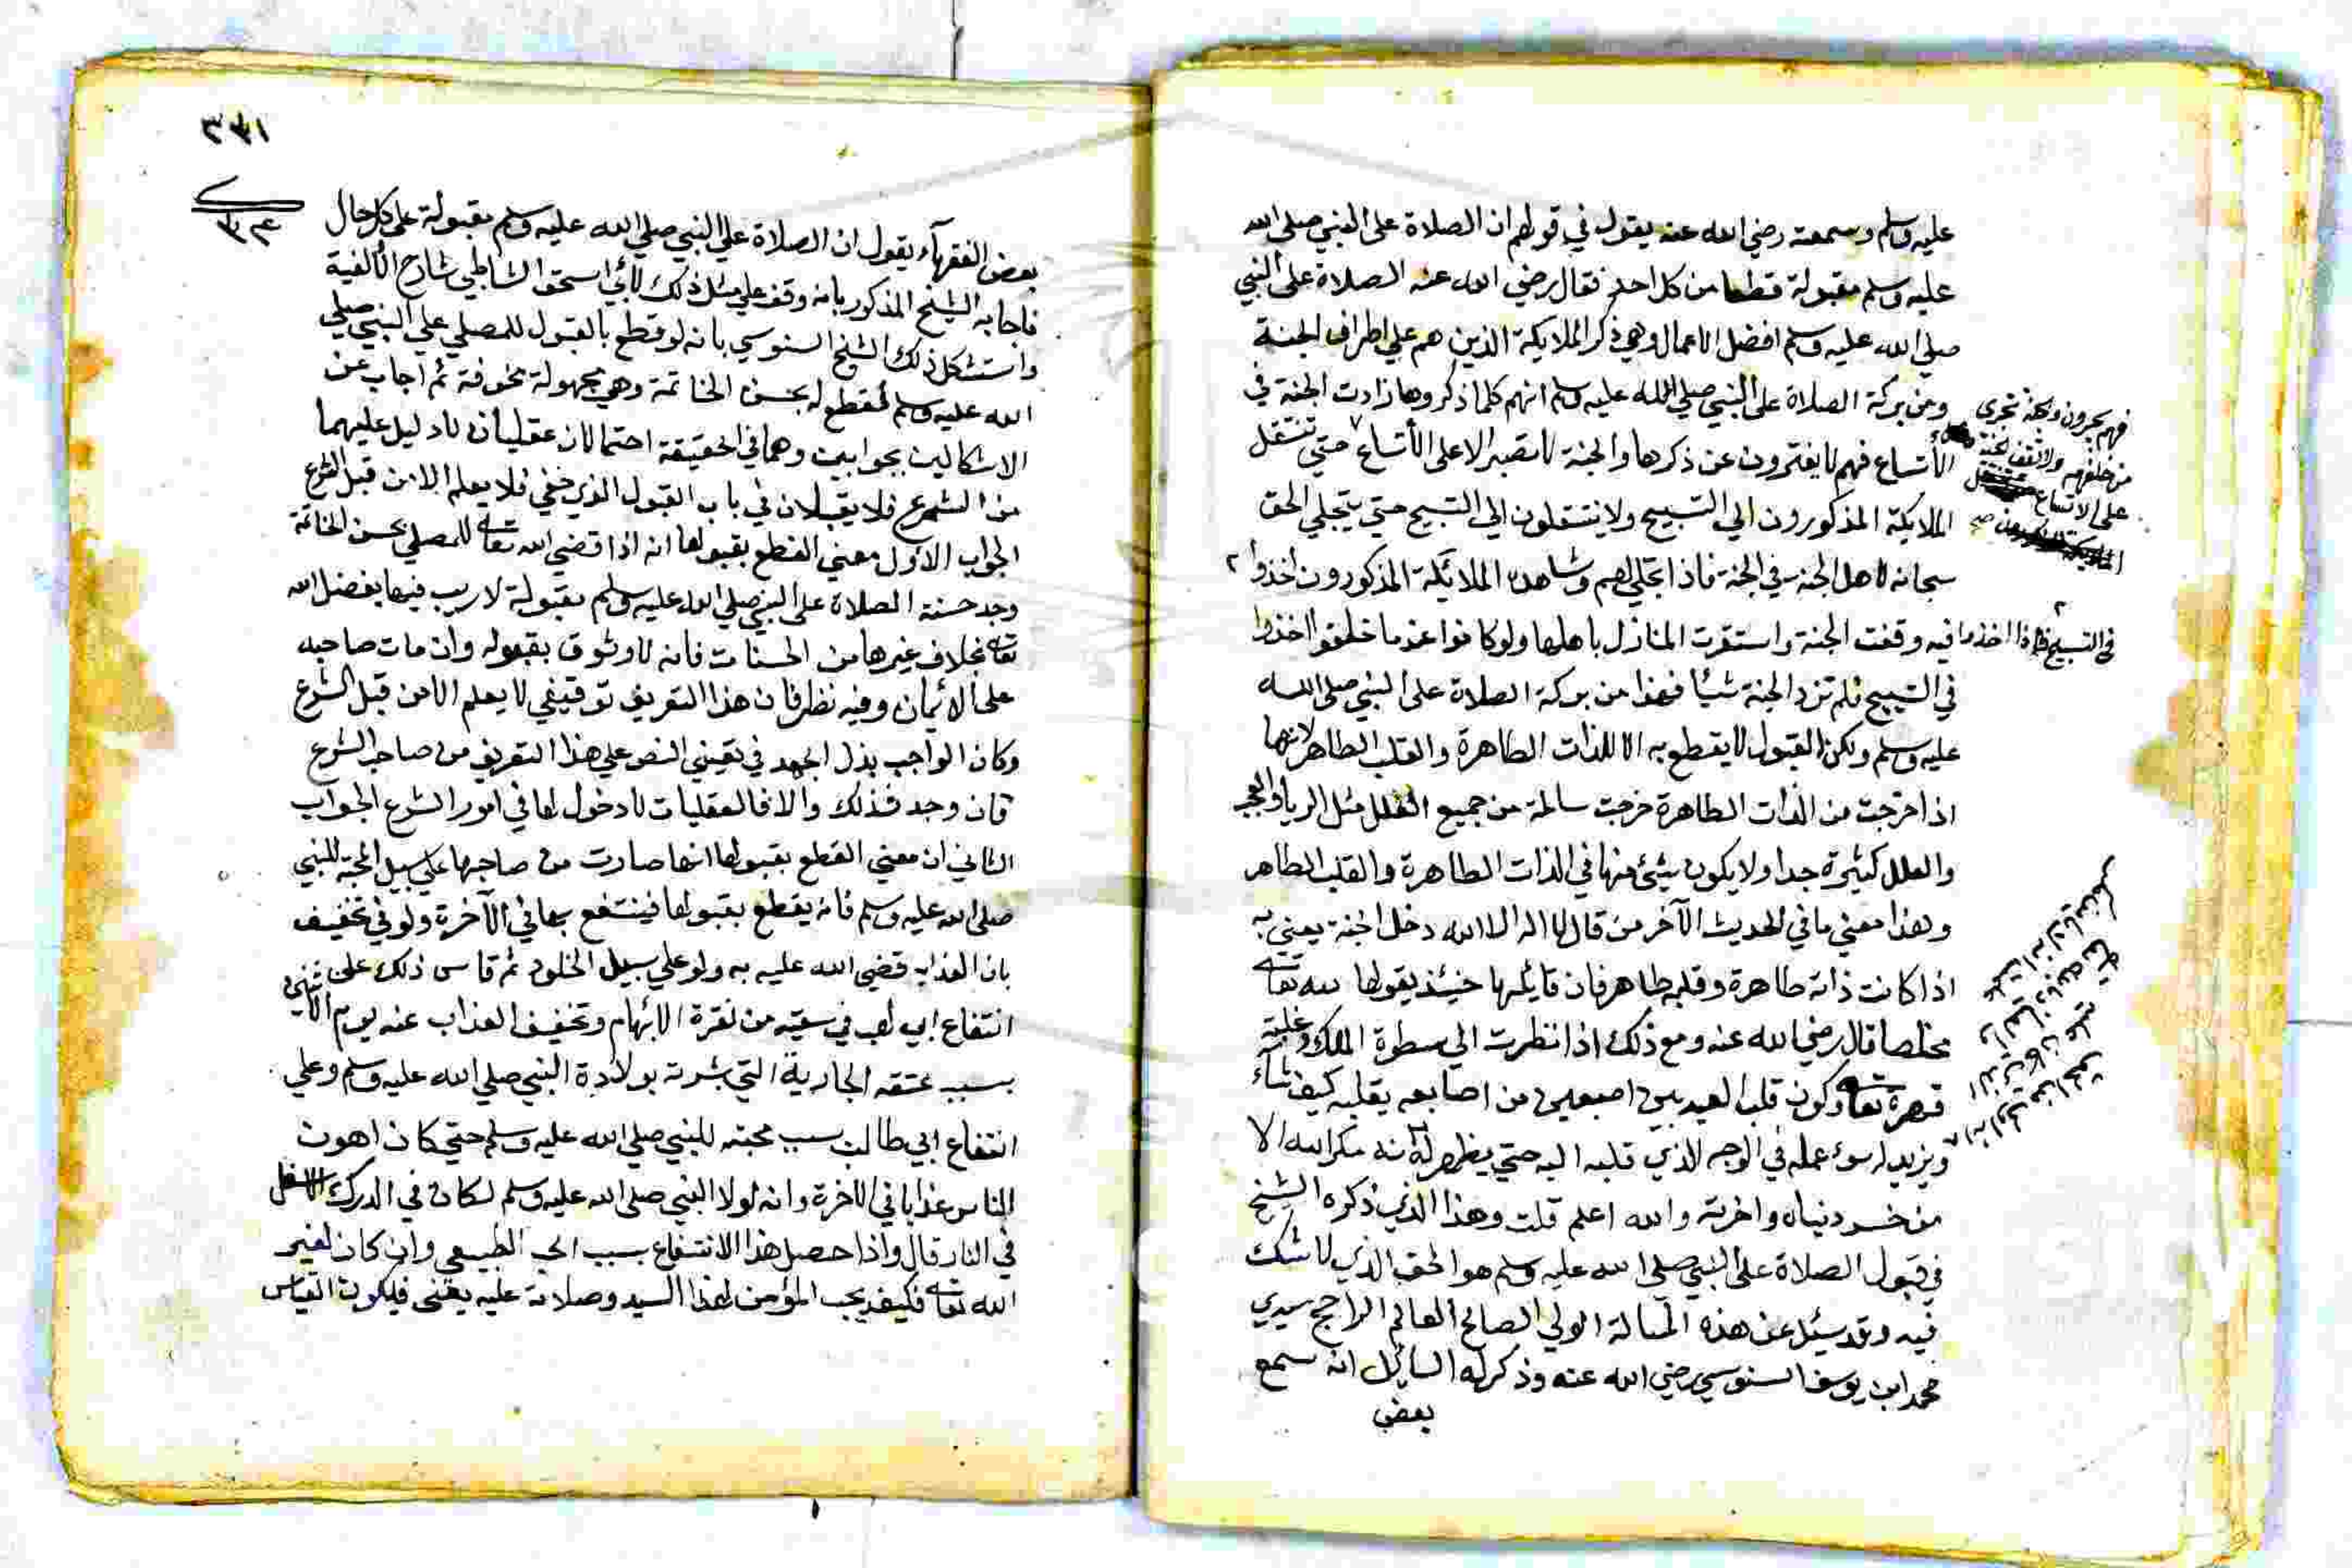 عليه وسلم وسمعته رضي الله عنه يقول في قولهم ان الصلاة على النبي صلى الله
عليه وسلم مقبولة قطعا من كل احد فقال رضي الله عنه الصلاة على النبي
صلي الله عليه وسلم افضل الاعمال وهي ذكر الملايكة الذين هم علي اطراف الجنة
ومن بركة الصلاة على النبي صلي الله عليه وسلم انهم كلما ذكروها زادت الجنة في
الأتساع فهم لا يفترون عن ذكرها والجنة لا تصبر الا على الأتساع حتي تنتقل
الملايكة المذكورون الي التسبيح ولا ينتقلون الي التسبيح حتي يتجلي الحق
سبحانه لاهل الجنة في الجنة فاذا تجلي لهم وشاهده الملائكة المذكورون اخذوا
في التسبيح فاذا اخذوا فيه وقفت الجنة واستقرت المنازل باهلها ولو كانوا عندما خلقوا اخذوا
في التسبيح فلم تزد الجنة شيأ فهذا من بركة الصلاة على النبي صلى الله
عليه وسلم ولكن القبول لا يقطع به الا للذات الطاهرة والقلب الطاهر لانها
اذا خرجت من الذات الطاهرة خرجت سالمة من جميع العلل مثل الريا والعجب
والعلل كثيرة جدا ولا يكون شئ منها في الذات الطاهرة والقلب الطاهر
وهذا معني ما في الحديث الآخر من قال لا اله الا الله دخل الجنة يعني به
اذا كانت ذاته طاهرة وقلبه طاهر فان قايلها حينئذ يقولها لله تعالى
مخلصا قال رضي الله عنه ومع ذلك اذا نظرت الي سطوة الملك وغلبة
قهره تعالى وكون قلب العبد بين اصبعين من اصابعه يقلبه كيف شاء
ويزيد له سوء عمله في الوجه الذي قلبه اليه حتي يظهر له انه مكر الله الا
من خسر دنياه واخرته والله اعلم قلت وهذا الذي ذكره الشيخ
في قبول الصلاة على النبي صلى الله عليه وسلم هو الحق الذي لا شك
فيه وقد سئل عن هذه المسالة الولي الصالح العالم الراجح سيدي
محمد ابن يوسف السنوسي رضي الله عنه وذكر له السايل انه سمع
بعض
فهم يجرون والجنة تجرى
من خلفهم ولا تقف الجنة
على الاتساع
بعض الفقهآء يقول ان الصلاة علي النبي صلي الله عليه وسلم مقبولة على كل حال
فاجابه الشيخ المذكور بانه وقف علي مثل ذلك لأبي اسحق الشاطبي شارح الألفية
واستشكل ذلك الشيخ السنوسي بانه لو قطع بالقبول للمصلي علي النبي صلي
الله عليه وسلم لقطع له بحسن الخاتمة وهي مجهولة مخوفة ثم اجاب عن
الاشكالين بجوابين وهما في الحقيقة احتمالان عقليان لا دليل عليهما
من الشرع فلا يقبلان في باب القبول الذي خفي فلا يعلم الا من قبل الشرع
الجواب الأول معني القطع بقبولها انه اذا قضي الله تعالى للمصلي بحسن الخاتمة
وجد حسنة الصلاة على النبي صلي الله عليه وسلم مقبولة لا ريب فيها بفضل الله
تعالى بخلاف غيرها من الحسنات فانه لا وثوق بقبوله وان مات صاحبه
على الأيمان وفيه نظر فان هذا التفريق توقيفي لا يعلم الا من قبل الشرع
وكان الواجب بذل الجهد في تعيين النص علي هذا التفريق من صاحب الشرع
فان وجد فذلك والا فالعقليات لا دخول لها في امور الشرع الجواب
الثاني ان معني القطع بقبولها انها صارت من صاحبها علي سبيل المحبة للنبي
صلى الله عليه وسلم فانه يقطع بقبولها فينتفع بها في الآخرة ولو في تخفيف
بان العذاب قضي الله عليه به ولو علي سبيل الخلود ثم قاس ذلك على
انتفاع ابي لهب في سقيه من نقرة الأبهام وتخفيف العذاب عنه يوم الأثنين
بسبب عتقه الجارية التي بشرته بولادة النبي صلي الله عليه وسلم وعلي
انتفاع ابي طالب بسبب محبته للنبي صلي الله عليه وسلم حتي كان اهون
الناس عذابا في الآخرة وانه لولا النبي صلى الله عليه وسلم لكان في الدرك الاسفل
في النار قال واذا حصل هذا الانتفاع بسبب الحب الطبيعي وان كان لغير
الله تعالى فكيف بحب المؤمن لهذا السيد وصلاته عليه يعني فيكون القياس